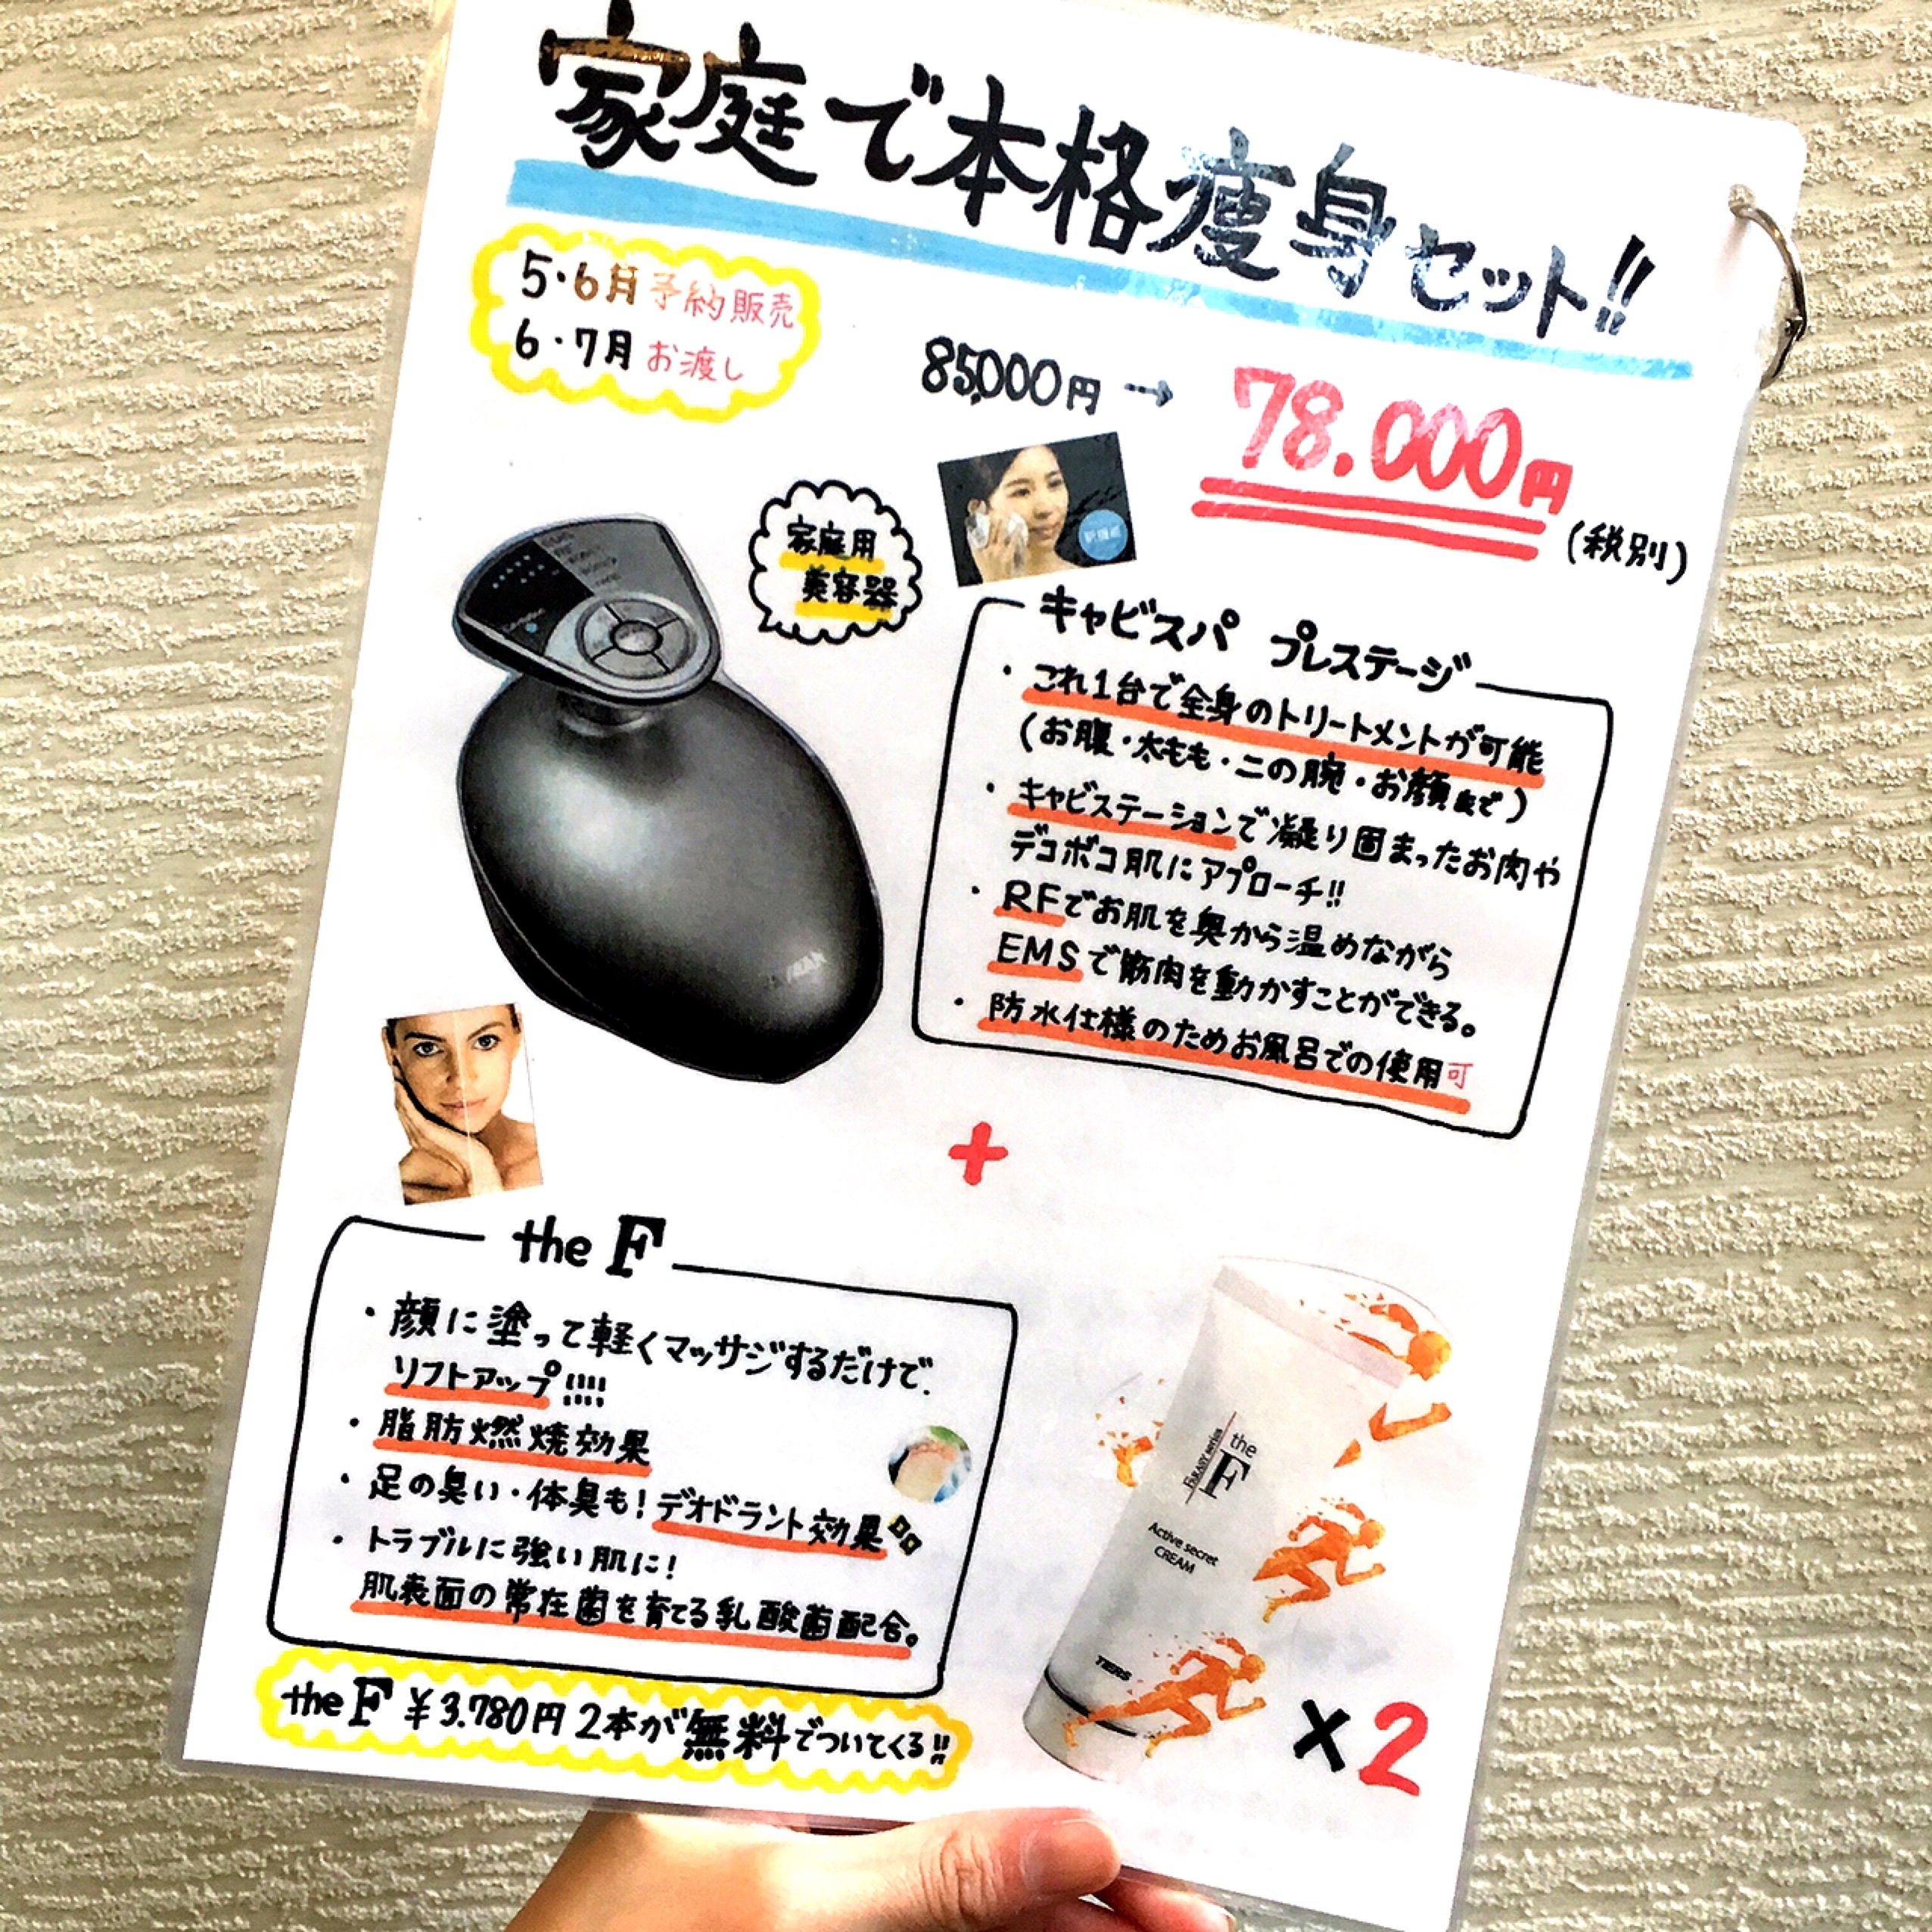 家庭で本格痩身セット!!
5・6月予約販売
6・7月お渡し
85,000円→78.000円
(税別)
家庭用
美容器
キャビスパ プレステージ
・これ1台で全身のトリートメントが可能
(お腹・太もも・二の腕・お顔まで)
・キャビステーションで凝り固まったお肉や
デコボコ肌にアプローチ!!
・RFでお肌を奥から温めながら
EMSで筋肉を動かすことができる。
・防水仕様のためお風呂での使用可
+
the F
・顔に塗って軽くマッサジするだけで.
リフトアップ!!!!
・脂肪燃焼効果
・足の臭い・体臭も!デオドラント効果
・トラブルに強い肌に!
肌表面の常在菌を育てる乳酸菌配合。
the F ¥3.780円2本が無料でついてくる!!
the
F
FARASY series
Active secret
CREAM
TIERS
×2